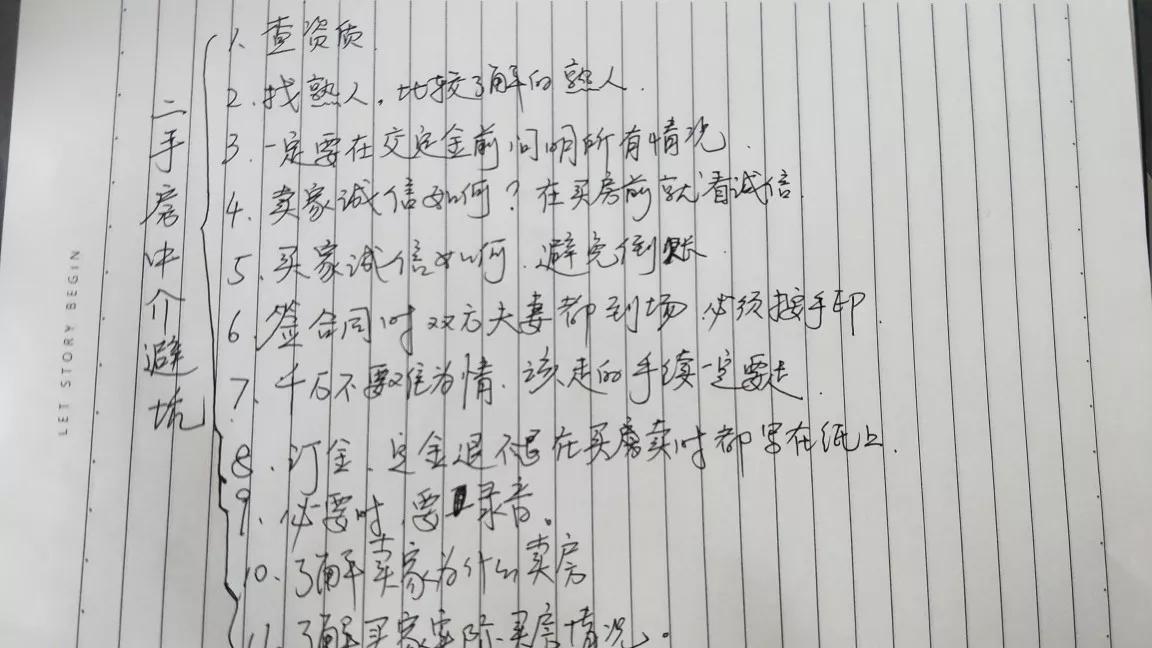 二手房中介避坑
1、查资质
2、找熟人，比较了解的熟人.
3、一定要在交定金前问明所有情况.
4、卖家诚信如何？在买房前就看诚信.
5、买家诚信如何.避免倒账.
6、签合同时双方夫妻都到场.必须按手印.
7、千万不要难为情、该走的手续一定要走.
8、订金、定金退不退在买房卖时都写在纸上.
9、必要时.要录音。
10、了解卖家为什么卖房
11、了解买家实际买房情况。
LET STORY BEGIN